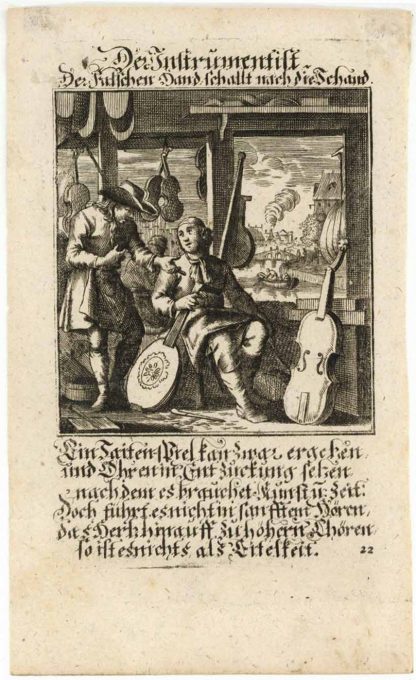 Der Instrumentist.
Der Falschen Hand schallt nach die Schand.
Ein Saitenspiel kan zwar ergehen,
und Ohren in Entzückung setzen
nach dem es brauchet Kunst u: Zeit.
Doch führt es nicht in sanfftem Hören,
das Hertz hinauff zu höhern Chören
so ist es nichts als Eitelkeit.
22